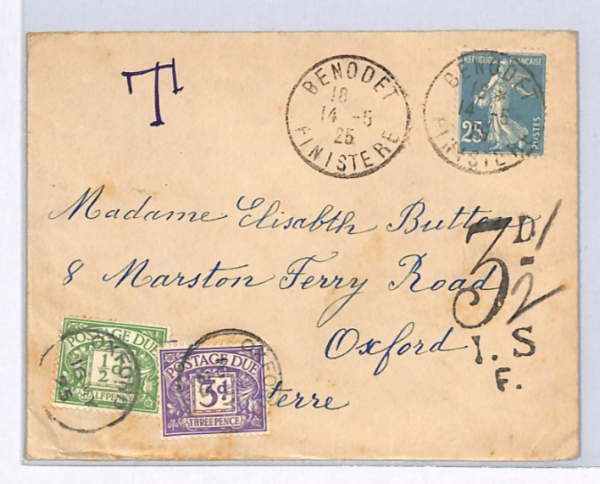 T
BENODET
18
14 -5
25
FINISTERE
BENODET
14 -5
FINISTERE
REPUBLIQUE FRANÇAISE
25
POSTES
Madame Elisabth Button
8 Marston Ferry Road
Oxford
terre
3D 1/2
I.S
F.
POSTAGE DUE
1/2 d
HALFPENNY
OXFORD
15
25
POSTAGE DUE
3d.
THREE PENCE